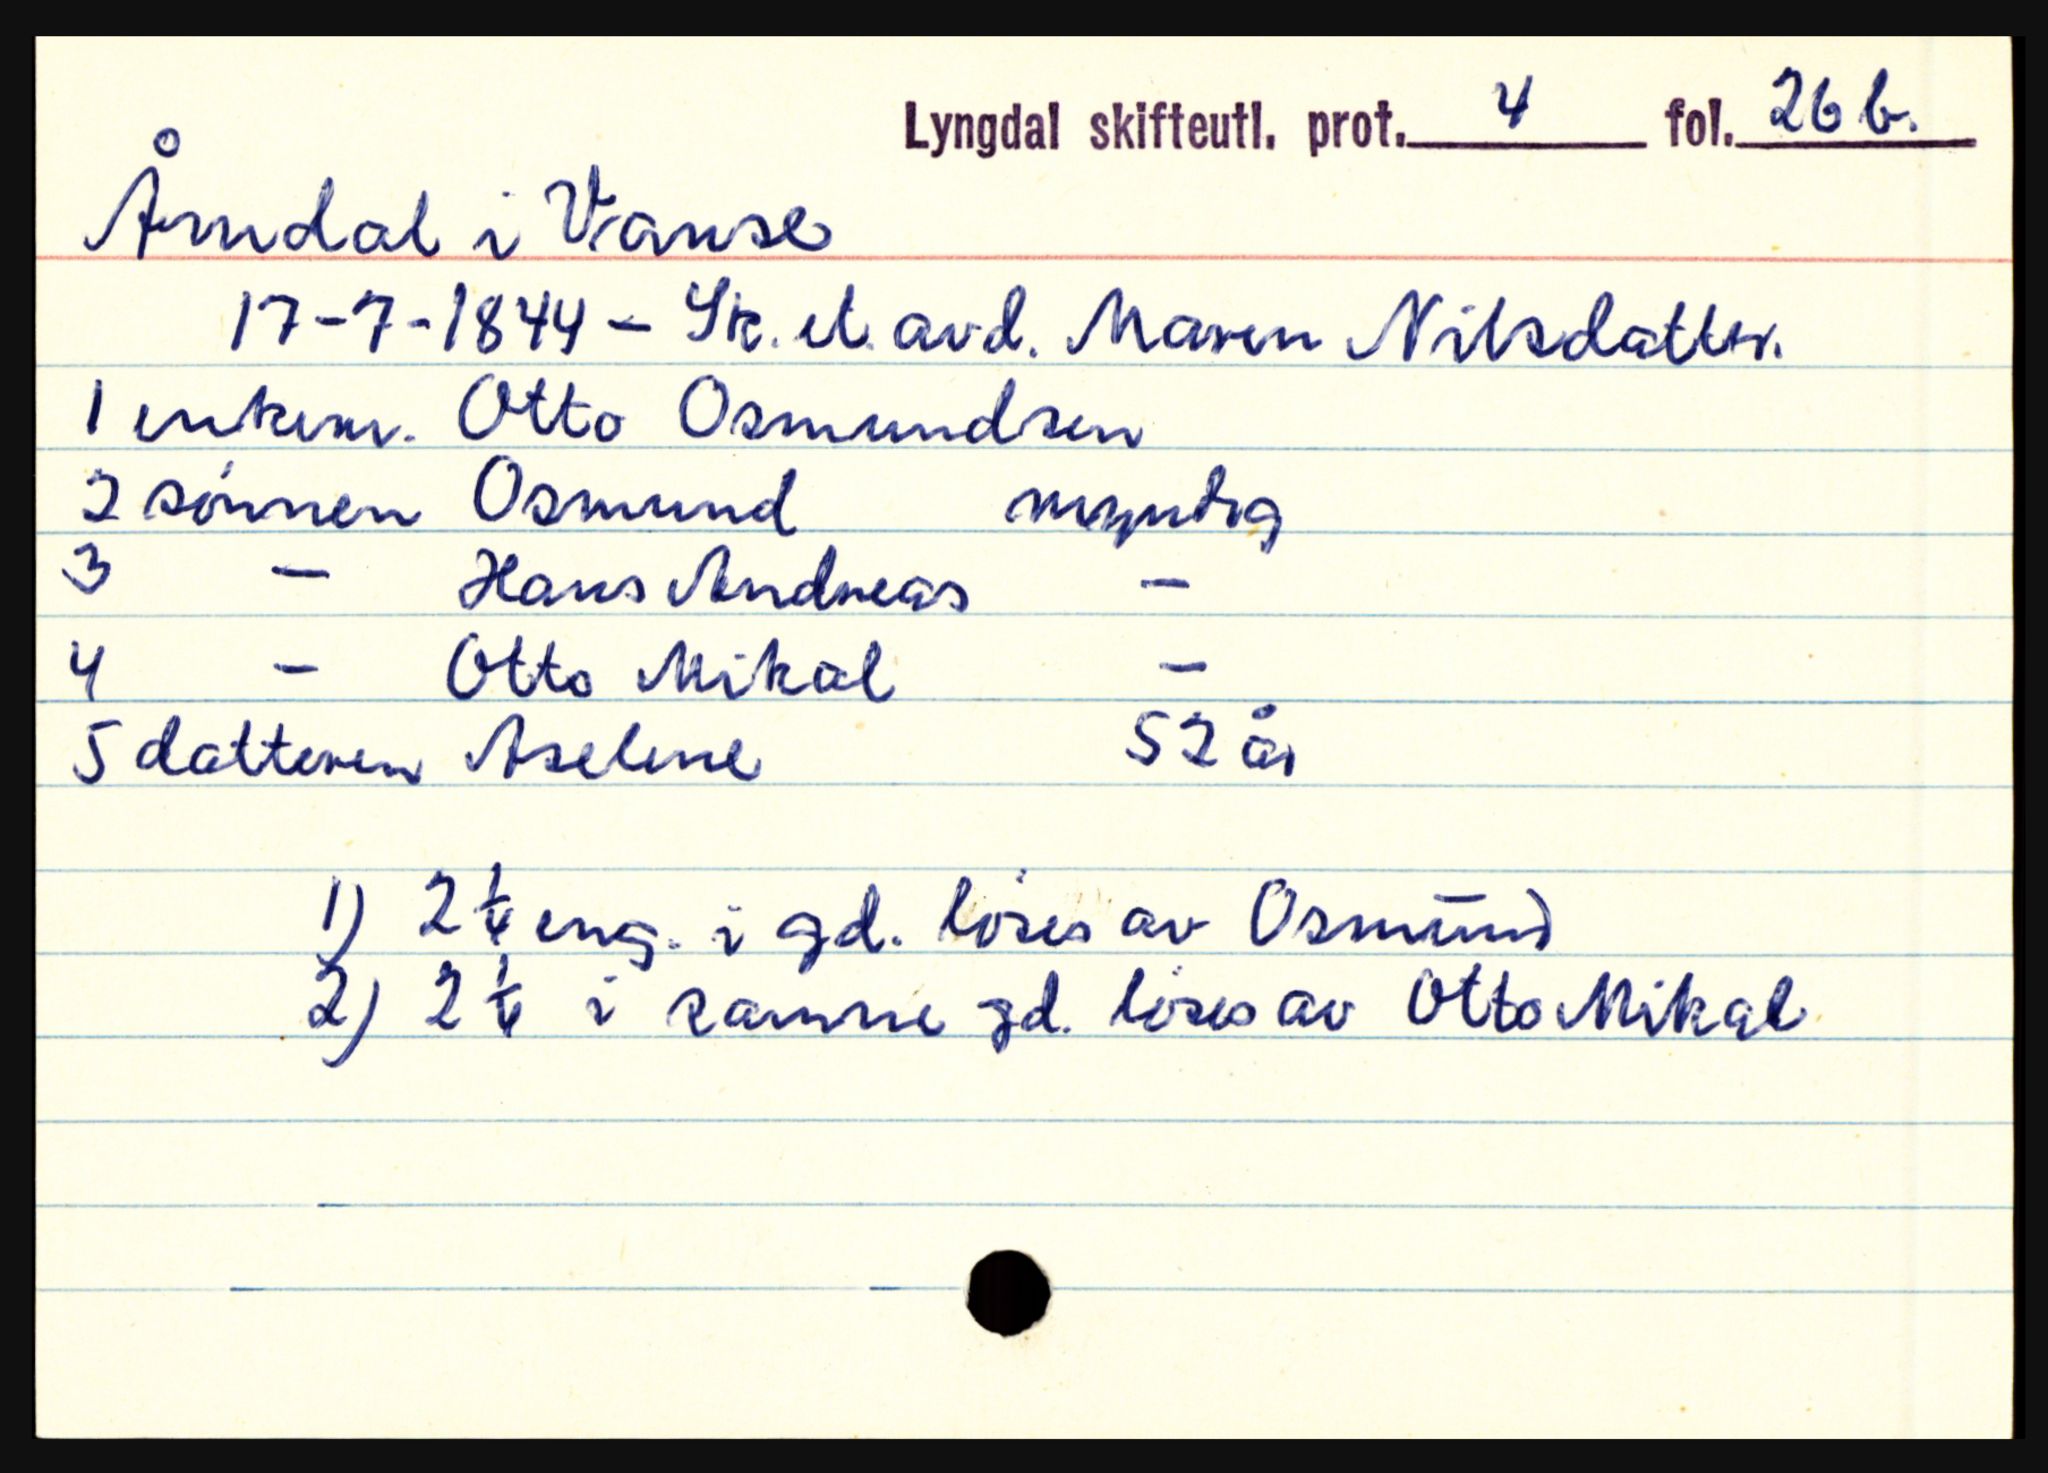 Lyngdal skifteutl. prot. 4 fol. 26 b.
Åmdal i Vanse
17-7-1844 - Sk. et. avd. Maren Nilsdatter.
1 enkem. Otto Osmundsen
2 sønnen Osmund myndig
3 - Hans Andreas -
4 - Otto Mikal -
5 datteren Aselene 52 år
1) 2 1/4 eng. i gd. löses av Osmund
2) 2 1/4 i samme gd. löses av Otto Mikal